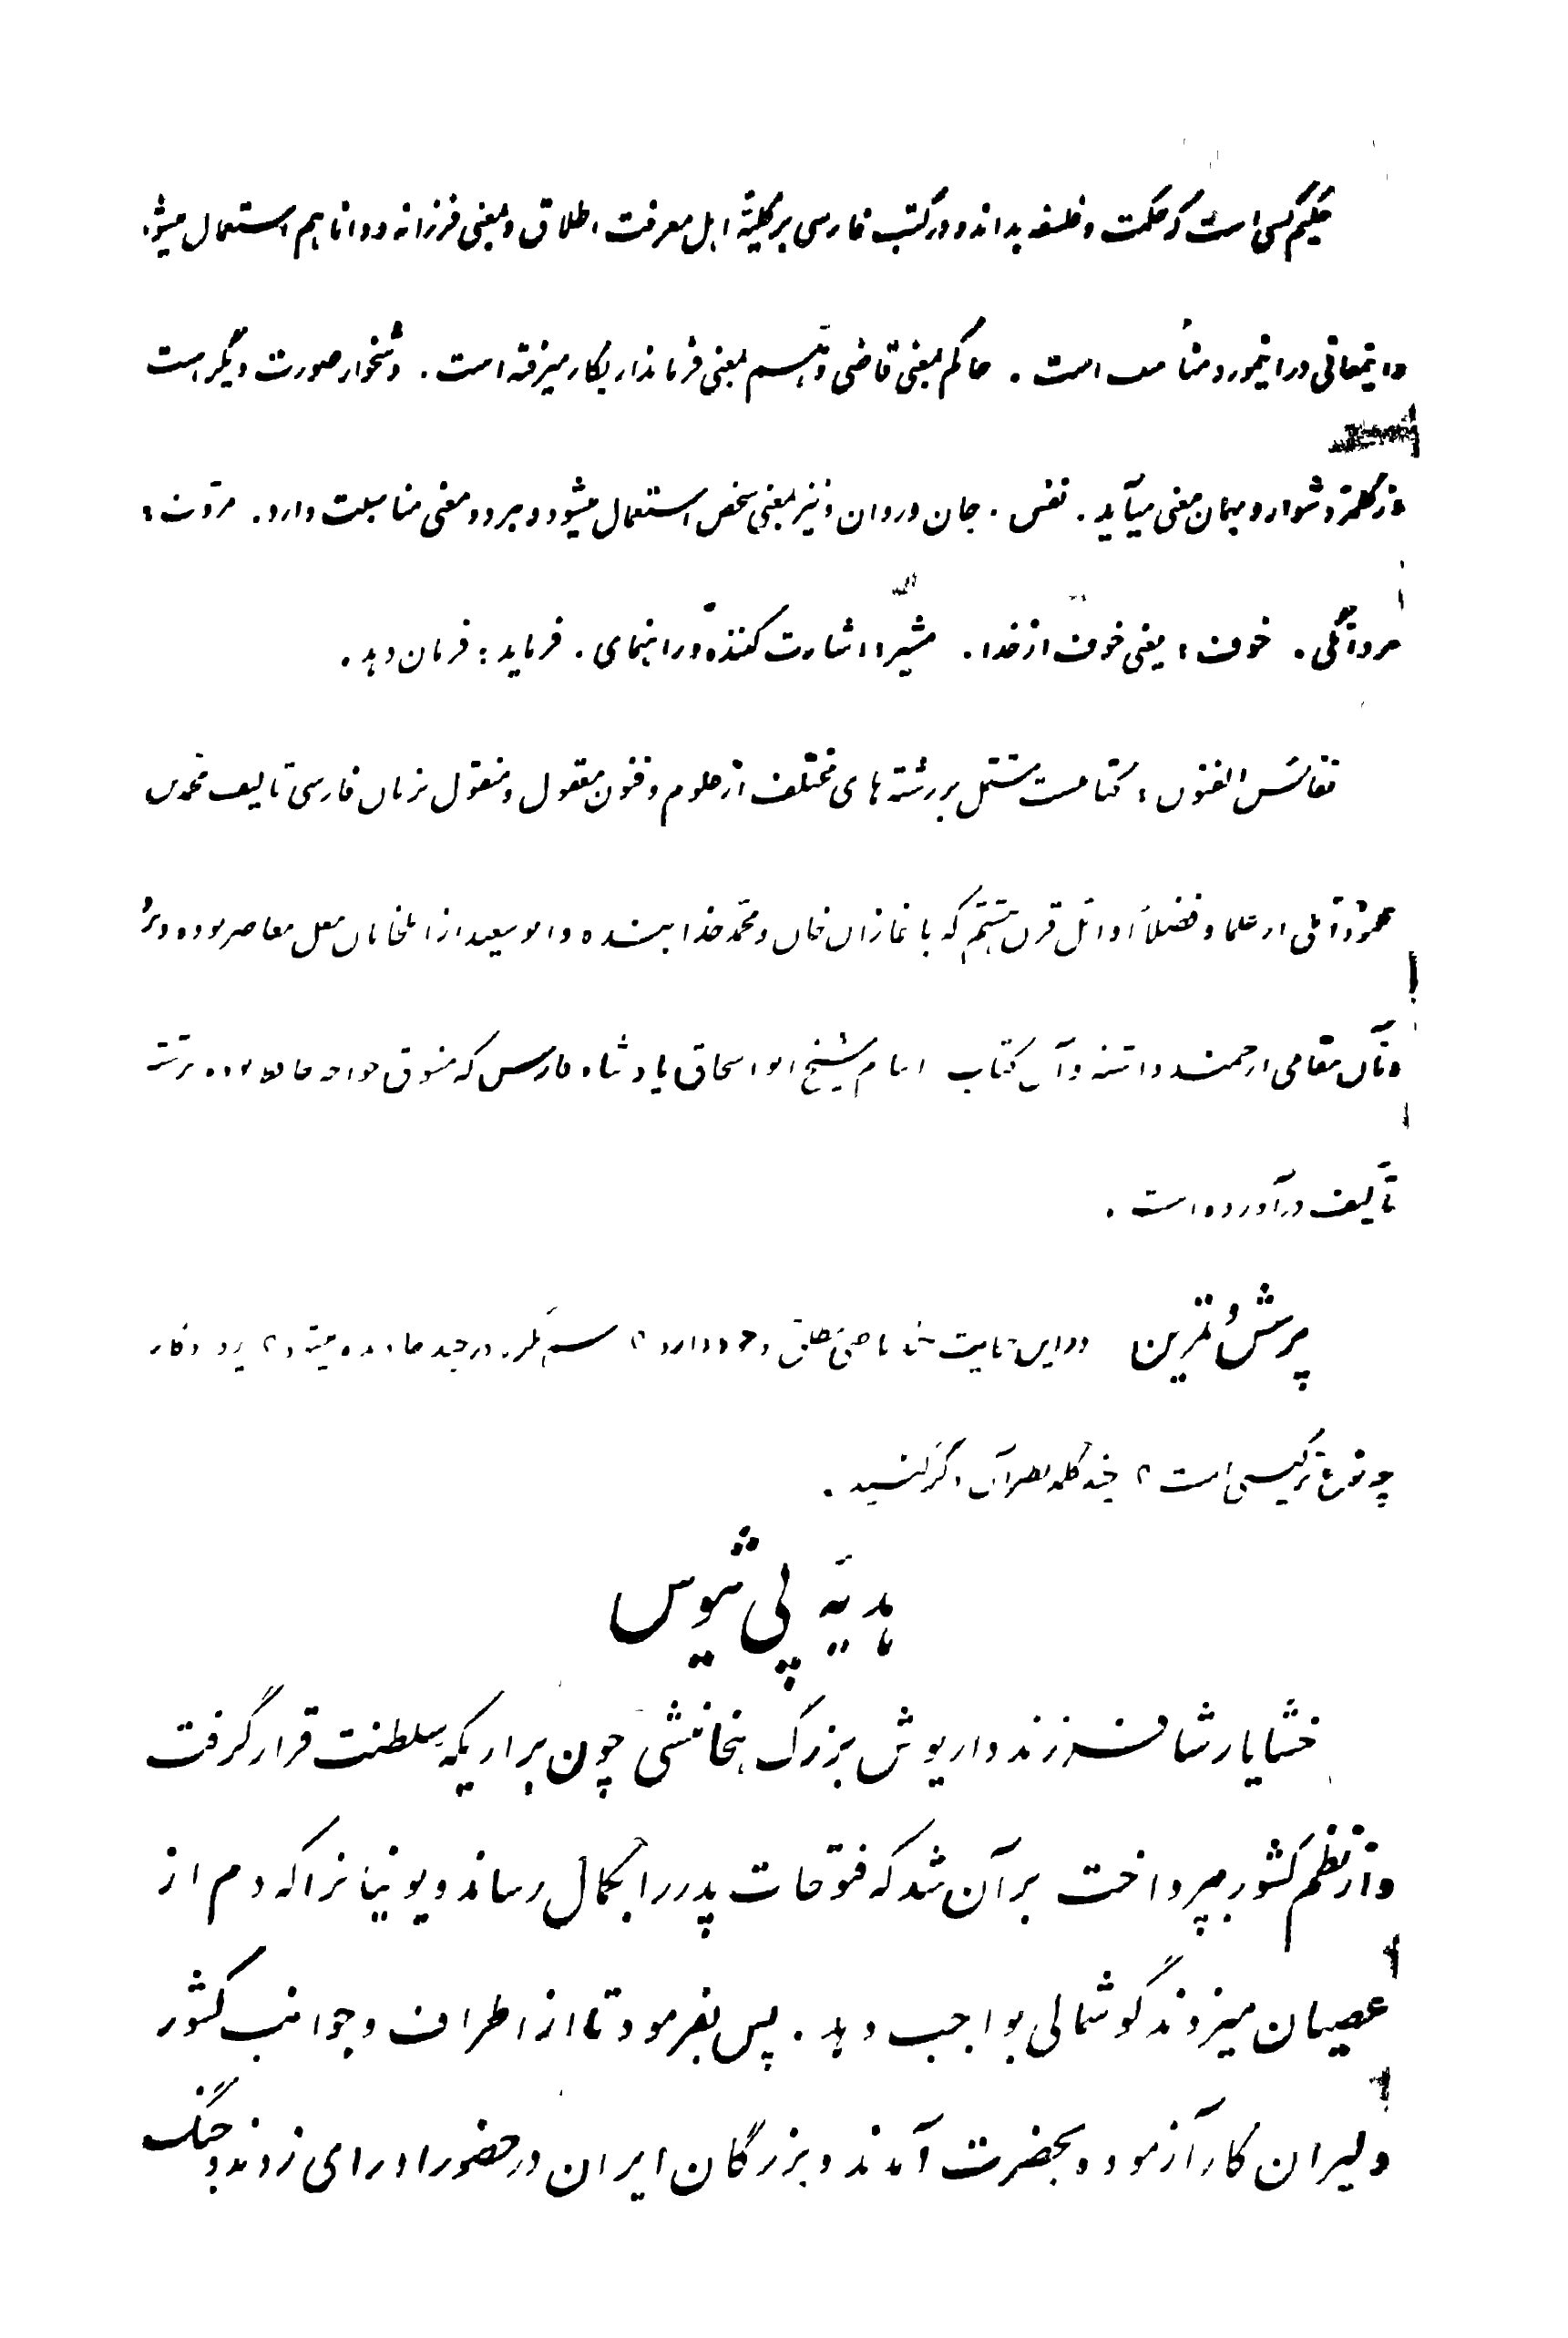 حکیم کسی است که حکمت و فلسفه بداند و در کتب فارسی بر کلیّهٔ اهل معرفت اطلاق و بمعنی فرزانه و دانا هم استعمال میشود
و اینمعانی در اینمورد مناسب است . حاکم بمعنی قاضی و هم بمعنی فرماندار بکار میرفته است . دشخوار صورت دیگر است
از کلمهٔ دشوار و بهمان معنی میآید . نفس : جان و روان و نیز بمعنی شخص استعمال میشود و بهر دو معنی مناسبت دارد . مروّت :
مردانگی . خوف : یعنی خوف از خدا . مشیر : اشارت کننده و راهنمای . فرماید : فرمان دهد .
نفائس الفنون : کتابیست مشتمل بر رشته های مختلف از علوم و فنون معقول و منقول بزبان فارسی تألیف محمّد بن
محمود آملی از علما و فضلاء اوائل قرن هشتم که با غازان خان و محمّد خدابنده و ابوسعید از ایلخانان مغل معاصر بوده و نزد
آنان مقامی ارجمند داشته و آن کتاب بنام شیخ ابو اسحاق پادشاه فارس که ممدوح خواجه حافظ بوده برشته
تألیف درآورده است .
پرسش و تمرین در این حکایت چند ماضی مطلق وجود دارد ؟ در چند مادّه میشود ؟
چه نوع ترکیبی است ؟ چند کلمه نظیر آن ذکر کنید .
هدیهٔ پی ثیوس
خشایارشا فرزند داریوش بزرگ هخامنشی چون بر اریکهٔ سلطنت قرار گرفت
و از نظم کشور بپرداخت بر آن شد که فتوحات پدر را بکمال رساند و یونیانرا که دم از
عصیان میزدند گوشمالی بواجب دهد . پس بفرمود تا از اطراف و جوانب کشور
دلیران کارآزموده بحضرت آمدند و بزرگان ایران در حضور او رای زدند و جنگ